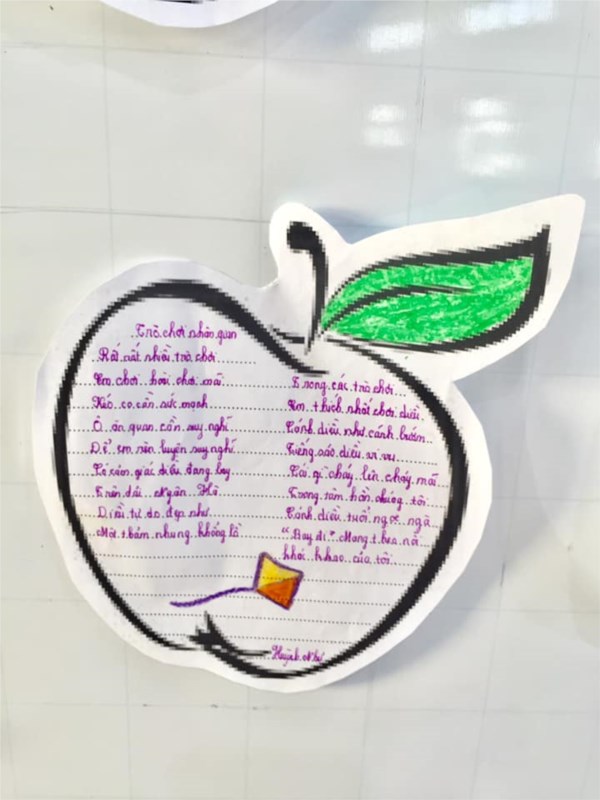 Trò chơi nhân quan
Rất rất nhiều trò chơi
Em chơi hoài chơi mãi
Kéo co cần sức mạnh
Ô ăn quan cần suy nghĩ
Để em rèn luyện suy nghĩ
Có cảm giác diều đang bay
Trên dải Ngân Hà
Diều tự do đẹp như
Một thảm nhung khổng lồ
Trong các trò chơi
Em thích nhất chơi diều
Cánh diều như cánh bướm
Tiếng sáo diều vi vu
Cái gì cháy lên cháy mãi
Trong tâm hồn chúng tôi
Cánh diều tuổi ngọc ngà
"Bay đi" Mang theo nỗi
khát khao của tôi
Huỳnh Như